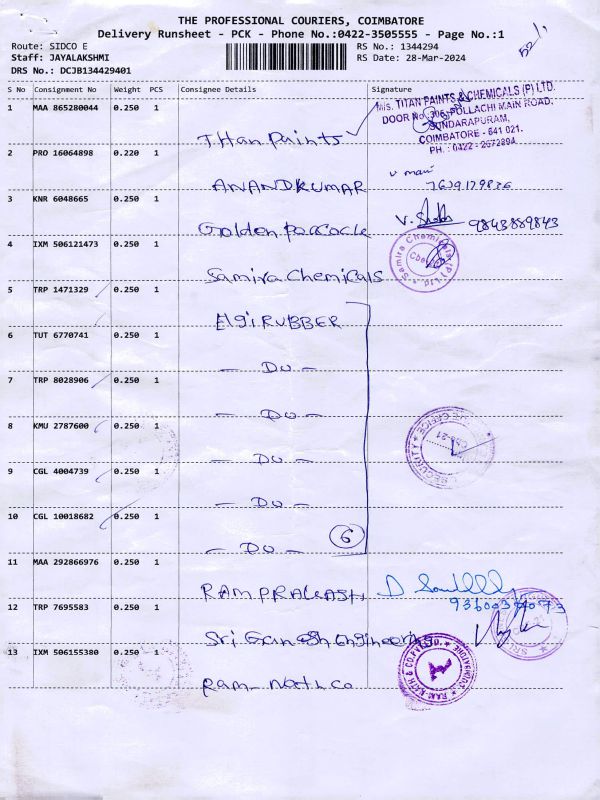 THE PROFESSIONAL COURIERS, COIMBATORE
Delivery Runsheet - PCK - Phone No.:0422-3505555 - Page No.:1
Route: SIDCO E
Staff: JAYALAKSHMI
DRS No.: DCJB134429401
RS No.: 1344294
RS Date: 28-Mar-2024
S No Consignment No Weight PCS Consignee Details Signature
1 MAA 865280044 0.250 1 Titan Paints
M/s. TITAN PAINTS & CHEMICALS (P) LTD.
DOOR No. 306, POLLACHI MAIN ROAD,
SUNDARAPURAM,
COIMBATORE - 641 021.
PH. : 0422 - 2672894
2 PRO 16064898 0.220 1 ANANDKUMAR
3 KNR 6048665 0.250 1 Golden Peacock V. 9843889843
4 IXM 506121473 0.250 1 Samira Chemicals
Samira Chemicals (P) Ltd.
5 TRP 1471329 0.250 1 Elgi RUBBER
6 TUT 6770741 0.250 1 - Do -
7 TRP 8028906 0.250 1 - Do -
8 KMU 2787600 0.250 1 - Do -
SECURITY
9 CGL 4004739 0.250 1 - Do -
10 CGL 10018682 0.250 1 - Do - 6
11 MAA 292866976 0.250 1 RAMPRAKASH D
12 TRP 7695583 0.250 1 Sri Ganesh Engineering
SRI
13 IXM 506155380 0.250 1 Ram-nath co
RAM-NATH & CO.PVT.LTD. COIMBATORE